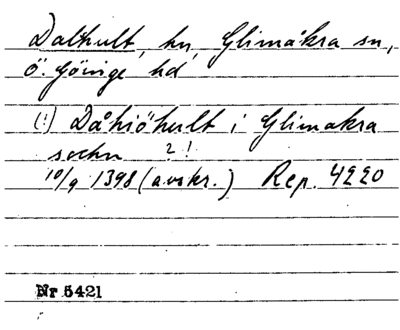 Dalhult, hn, Glimåkra sn,
Ö. Göinge hd
(!) Dåhiöhult i Glimakra
sochn ? !
10/9 1398 (avskr.) Rep. 4220
Nr 5421